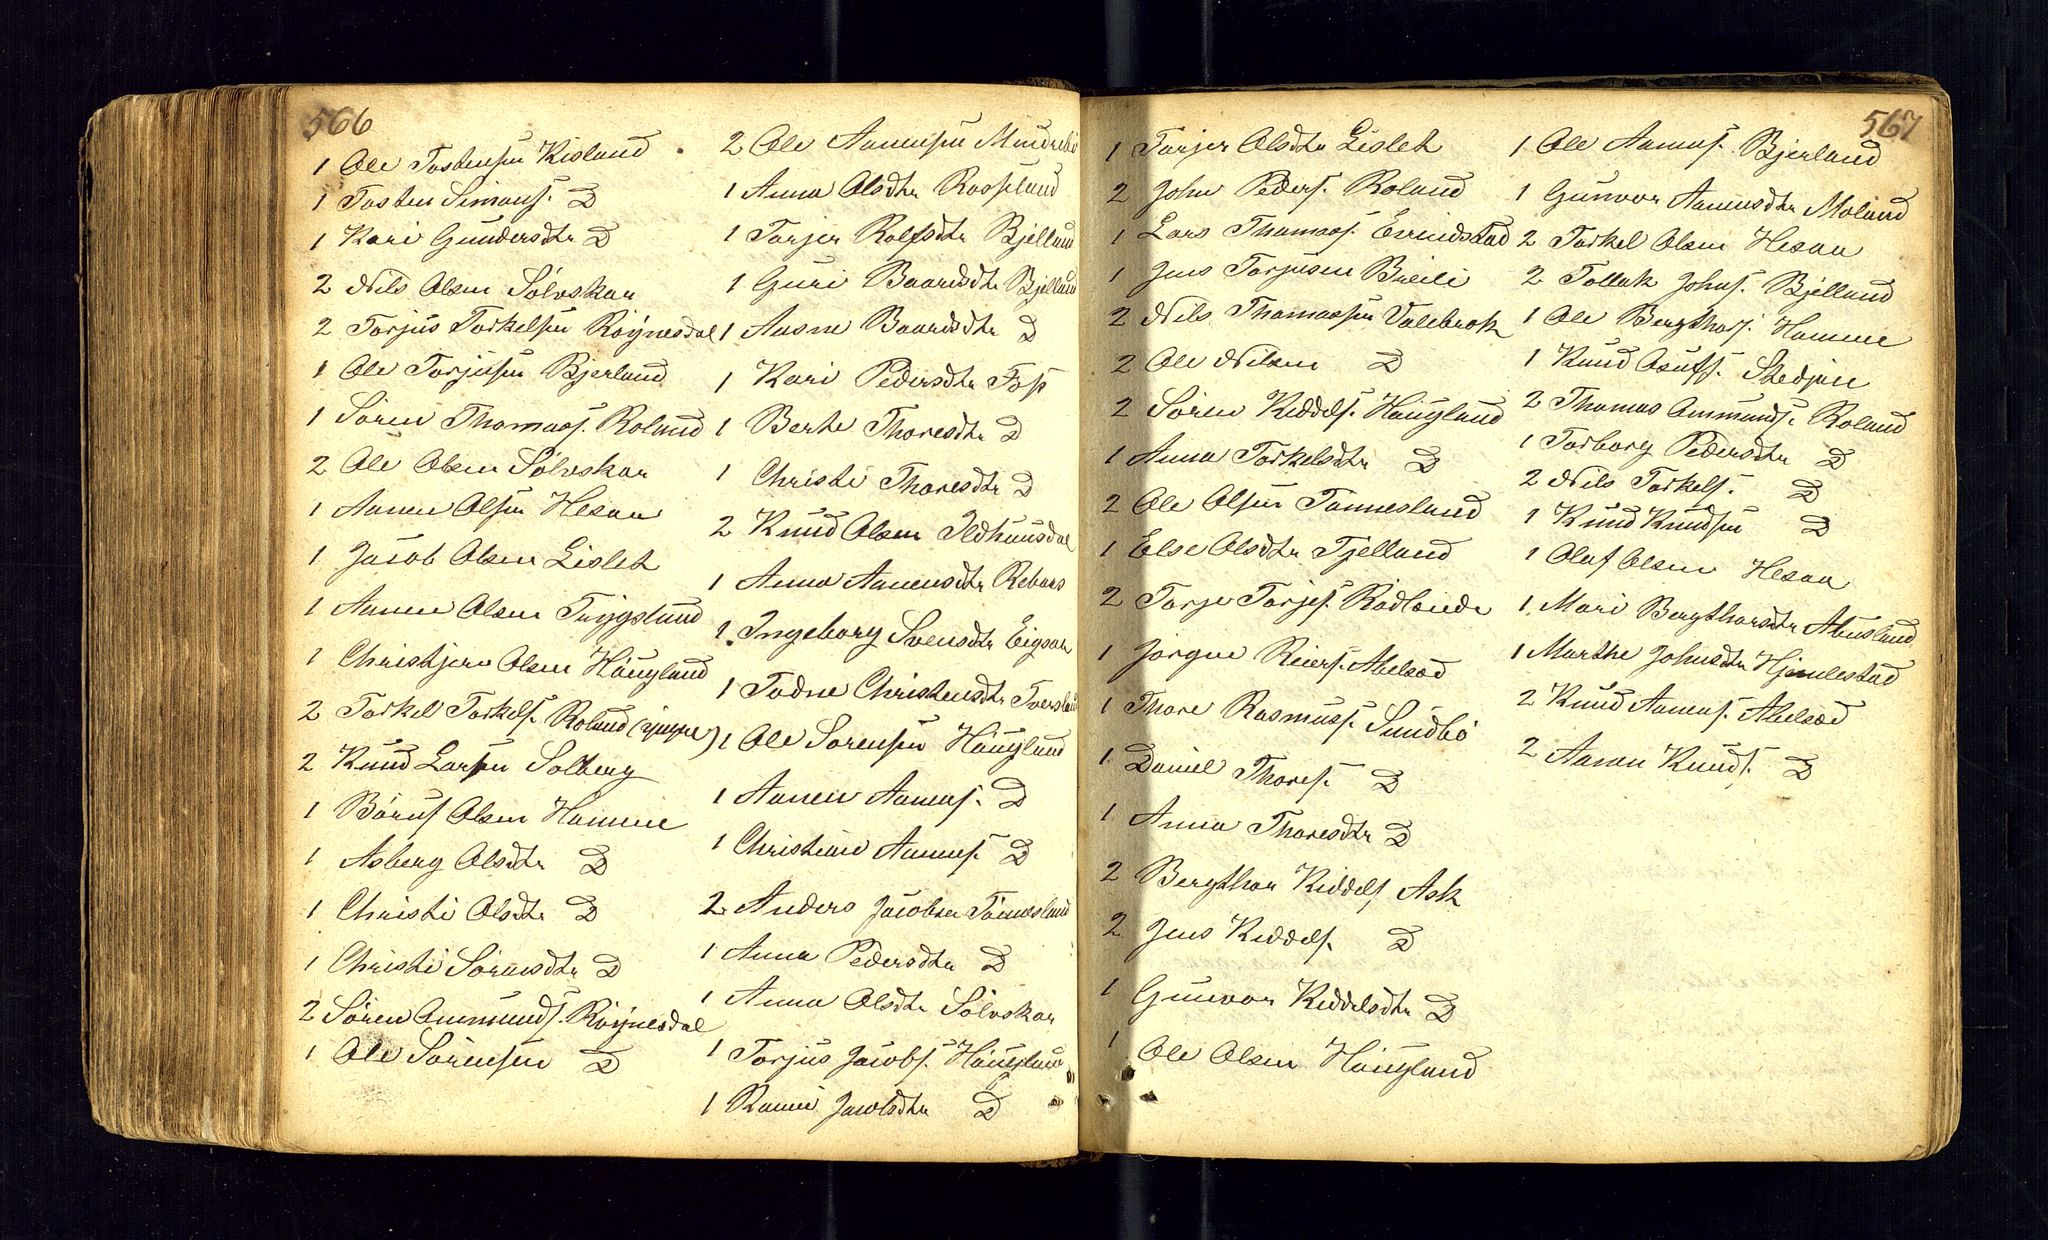 566
1 Ole Tostensen Kisland
1 Tosten Simons. D
1 Kari Gundersdtr D
2 Nils Olsen Solvskar
2 Torjus Torkelsen Röynesdal
1 Ole Torjusen Bjerland
1 Sören Thomass. Roland
2 Ole Olsen Solvskar
1 Aanen Olsen Hesaa
1 Jacob Olsen Lislet
1 Aanen Olsen
1 Olsen Höugland
2 Torkel Torkels. Roland (yngre)
2 Knud Larsen Solberg
1 Baruf Olsen Homme
1 Asberg Olsdtr D
1 Christi Olsdtr D
1 Christi Sörensdtr D
2 Sören Ommunds. Röynesdal
1 Ole Sörensen D
2 Ole Aanensen Mindrebö
1 Anna Olsdtr Rosseland
1 Torjer Rolfsdtr Bjelland
1 Guri Baardsdtr Bjelland
1 Aasne Baardsdtr D
1 Kari Pedersdtr Foss
1 Berte Thoresdtr D
1 Christi Thoresdtr D
2 Knud Olsen Ildhuusdal
1 Anna Aanensdtr
1 Ingeborg Svensdtr Eigsaa
1 Todne Christensdtr
1 Ole Sorensen Höugland
1 Aanen Aanens. D
1 Christian Aanens. D
2 Anders Jacobsen Tönnesland
1 Anna Pedersdtr D
1 Anna Olsdtr Sölvskar
1 Torjus Jacobs. Höugland
1 Jacobsdtr D
567
1 Torjer Olsdtr Lislet
2 John Peders. Roland
1 Lars Thomass. Eerindstad
1 Jens Torjusen Breili
2 Nils Thomassen Valebrok
2 Ole Nilsen D
2 Sören Keddels. Höugland
1 Anna Torkelsdtr D
2 Ole Olsen Tönnesland
1 Else Olsdtr Tjelland
2 Torje Torjes. Rödlande
1 Jörgen Reiers. Abelsød
1 Thore Rasmuss. Sundbö
1 Daniel Thores. D
1 Anna Thoresdtr D
2 Bergthor Kiddels. Ask
2 Jens Keddels. D
1 Gunvor Kiddelsdtr D
1 Ole Olsen Höugland
1 Ole Aanens. Bjerland
1 Gunvor Aanensdtr Moland
2 Torkel Olsen Hesaa
2 Tollak Johns. Bjelland
1 Ole Bergthors. Homme
1 Knud Asulfs. Stedjan
2 Thomas Ommunds. Roland
1 Torborg Pedersdtr D
2 Nils Torkels. D
1 Knud Knudsen D
1 Olaf Olsen Hesaa
1 Mari Bergthorsdtr Abusland
1 Marthe Johnsdtr Hjemlestad
2 Knud Aanens. Abelsød
2 Aanon Knuds. D